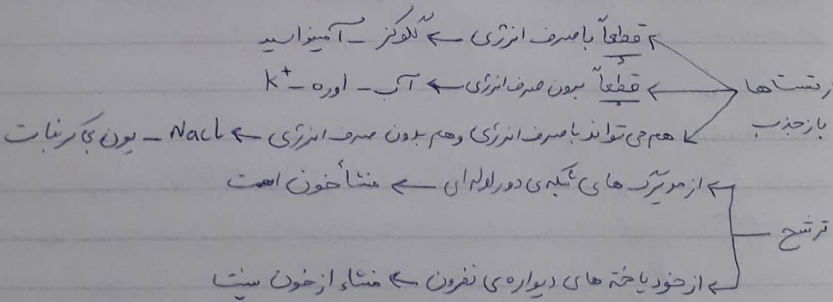 قطعاً با صرف انرژی ← گلوکز - آمینواسید
بازجذب ← قطعاً بدون صرف انرژی ← آب - اوره - K+
هم می تواند با صرف انرژی و هم بدون صرف انرژی ← NaCl - یون بی کربنات
ترشح
از مویرگ های شبکه ی دور لوله ای ← منشأ خون است
از خود یاخته های دیواره ی نفرون ← منشاء از خون نیست